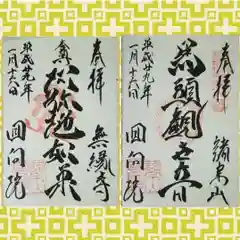 奉拝
馬頭観世音
平成廿九年
一月十六日
回向院
奉拝
無縁寺
如来
平成廿九年
一月十六日
回向院